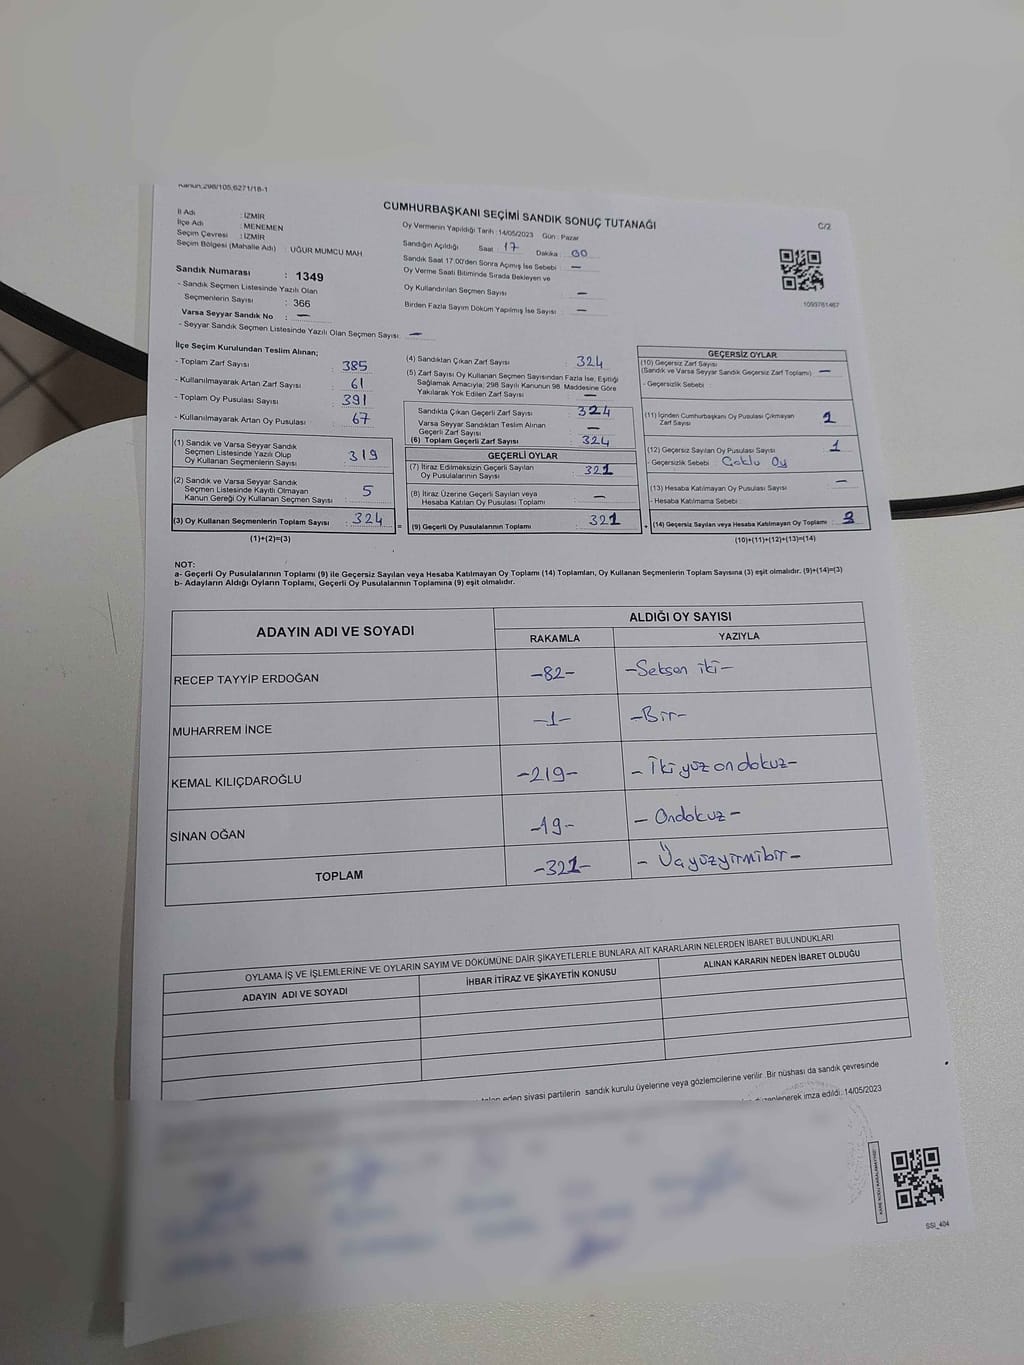 Kanun,298/105,6271/18-1
CUMHURBAŞKANI SEÇİMİ SANDIK SONUÇ TUTANAĞI
C/2
İl Adı : İZMİR
İlçe Adı : MENEMEN
Seçim Çevresi : İZMİR
Seçim Bölgesi (Mahalle Adı) : UĞUR MUMCU MAH
Oy Vermenin Yapıldığı Tarih :14/05/2023 Gün : Pazar
Sandığın Açıldığı Saat 17 Dakika 00
Sandık Saat 17.00'den Sonra Açımış İse Sebebi —
Oy Verme Saati Bitiminde Sırada Bekleyen ve
Oy Kullandırılan Seçmen Sayısı —
Birden Fazla Sayım Döküm Yapılmış İse Sayısı : —
1093761467
Sandık Numarası : 1349
- Sandık Seçmen Listesinde Yazılı Olan
Seçmenlerin Sayısı : 366
Varsa Seyyar Sandık No : —
- Seyyar Sandık Seçmen Listesinde Yazılı Olan Seçmen Sayısı: —
İlçe Seçim Kurulundan Teslim Alınan;
- Toplam Zarf Sayısı : 385
- Kullanılmayarak Artan Zarf Sayısı : 61
- Toplam Oy Pusulası Sayısı : 391
- Kullanılmayarak Artan Oy Pusulası : 67
(1) Sandık ve Varsa Seyyar Sandık
Seçmen Listesinde Yazılı Olup
Oy Kullanan Seçmenlerin Sayısı : 319
(2) Sandık ve Varsa Seyyar Sandık
Seçmen Listesinde Kayıtlı Olmayan
Kanun Gereği Oy Kullanan Seçmen Sayısı : 5
(3) Oy Kullanan Seçmenlerin Toplam Sayısı : 324 =
(1)+(2)=(3)
(4) Sandıktan Çıkan Zarf Sayısı : 324
(5) Zarf Sayısı Oy Kullanan Seçmen Sayısından Fazla İse, Eşitliği
Sağlamak Amacıyla; 298 Sayılı Kanunun 98. Maddesine Göre
Yakılarak Yok Edilen Zarf Sayısı : —
Sandıkta Çıkan Geçerli Zarf Sayısı : 324
Varsa Seyyar Sandıktan Teslim Alınan
Geçerli Zarf Sayısı : —
(6) Toplam Geçerli Zarf Sayısı : 324
GEÇERLİ OYLAR
(7) İtiraz Edilmeksizin Geçerli Sayılan
Oy Pusulalarının Sayısı : 321
(8) İtiraz Üzerine Geçerli Sayılan veya
Hesaba Katılan Oy Pusulası Toplamı : —
(9) Geçerli Oy Pusulalarının Toplamı : 321 +
GEÇERSİZ OYLAR
(10) Geçersiz Zarf Sayısı
(Sandık ve Varsa Seyyar Sandık Geçersiz Zarf Toplamı) : —
- Geçersizlik Sebebi :
(11) İçinden Cumhurbaşkanı Oy Pusulası Çıkmayan
Zarf Sayısı : 2
(12) Geçersiz Sayılan Oy Pusulası Sayısı : 1
- Geçersizlik Sebebi : Çoklu Oy
(13) Hesaba Katılmayan Oy Pusulası Sayısı : —
- Hesaba Katılmama Sebebi :
(14) Geçersiz Sayılan veya Hesaba Katılmayan Oy Toplamı : 3
(10)+(11)+(12)+(13)=(14)
NOT:
a- Geçerli Oy Pusulalarının Toplamı (9) ile Geçersiz Sayılan veya Hesaba Katılmayan Oy Toplamı (14) Toplamları, Oy Kullanan Seçmenlerin Toplam Sayısına (3) eşit olmalıdır. (9)+(14)=(3)
b- Adayların Aldığı Oyların Toplamı, Geçerli Oy Pusulalarının Toplamına (9) eşit olmalıdır.
ADAYIN ADI VE SOYADI
ALDIĞI OY SAYISI
RAKAMLA YAZIYLA
RECEP TAYYİP ERDOĞAN -82- -Seksen iki-
MUHARREM İNCE -1- -Bir-
KEMAL KILIÇDAROĞLU -219- - İki yüz on dokuz-
SİNAN OĞAN -19- - Ondokuz -
TOPLAM -321- - Üçyüzyirmibir -
OYLAMA İŞ VE İŞLEMLERİNE VE OYLARIN SAYIM VE DÖKÜMÜNE DAİR ŞİKAYETLERLE BUNLARA AİT KARARLARIN NELERDEN İBARET BULUNDUKLARI
ADAYIN ADI VE SOYADI
İHBAR İTİRAZ VE ŞİKAYETİN KONUSU
ALINAN KARARIN NEDEN İBARET OLDUĞU
eden siyasi partilerin sandık kurulu üyelerine veya gözlemcilerine verilir. Bir nüshası da sandık çevresinde
düzenlenerek imza edildi. 14/05/2023
KARE KODU KARALAMAYINIZ!
SSI_404